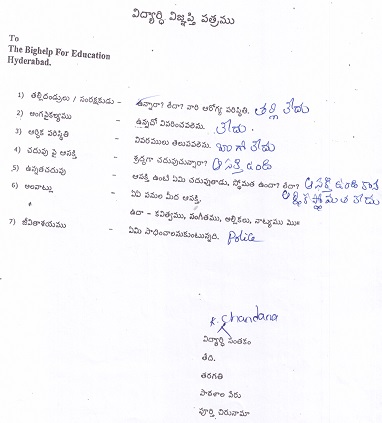 విద్యార్ధి విజ్ఞప్తి పత్రము
To
The Bighelp For Education
Hyderabad.
1) తల్లిదండ్రులు / సంరక్షకుడు - ఉన్నారా? లేదా? వారి ఆరోగ్య పరిస్థితి. తల్లి లేదు
2) అంగవైకల్యము - ఉన్నదో వివరించవలెను. లేదు.
3) ఆర్ధిక పరిస్థితి - వివరములు తెలుపవలెను. బాగా లేదు
4) చదువు పై ఆసక్తి - శ్రద్ధగా చదువుచున్నారా? ఆసక్తి ఉంది
5) ఉన్నతచదువు - ఆసక్తి ఉంటే ఏమి చదువుతాడు, స్థోమత ఉందా? లేదా? ఆసక్తి ఉంది కానీ
6) అలవాట్లు - ఏయే పనుల మీద ఆసక్తి. స్తోమత లేదు
ఉదా - కవిత్వము, సంగీతము, అల్లికలు, నాట్యము మొ॥
7) జీవితాశయము - ఏమి సాధించాలనుకుంటున్నది. Police
K. Chandana
విద్యార్ధి సంతకం
తేది.
తరగతి
పాఠశాల పేరు
పూర్తి చిరునామా